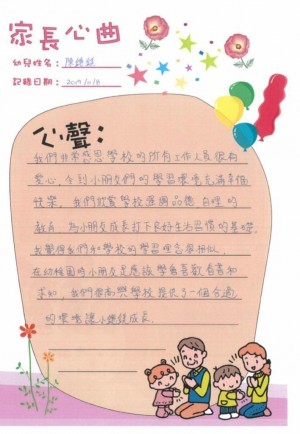 家長心曲
幼兒姓名：陳
記錄日期：2019
心聲：
我們非常感恩學校的所有工作人員很有
愛心，令到小朋友們的學習環境充滿幸福
快樂。我們欣賞學校運用品德自理的
教育，為小朋友成長打下良好生活習慣的基礎。
我覺得我們和學校的學習理念很相似，
在幼稚園時小朋友是應該學會喜歡看書和
求知，我們很高興學校提供了一個合適
的環境讓小成長。